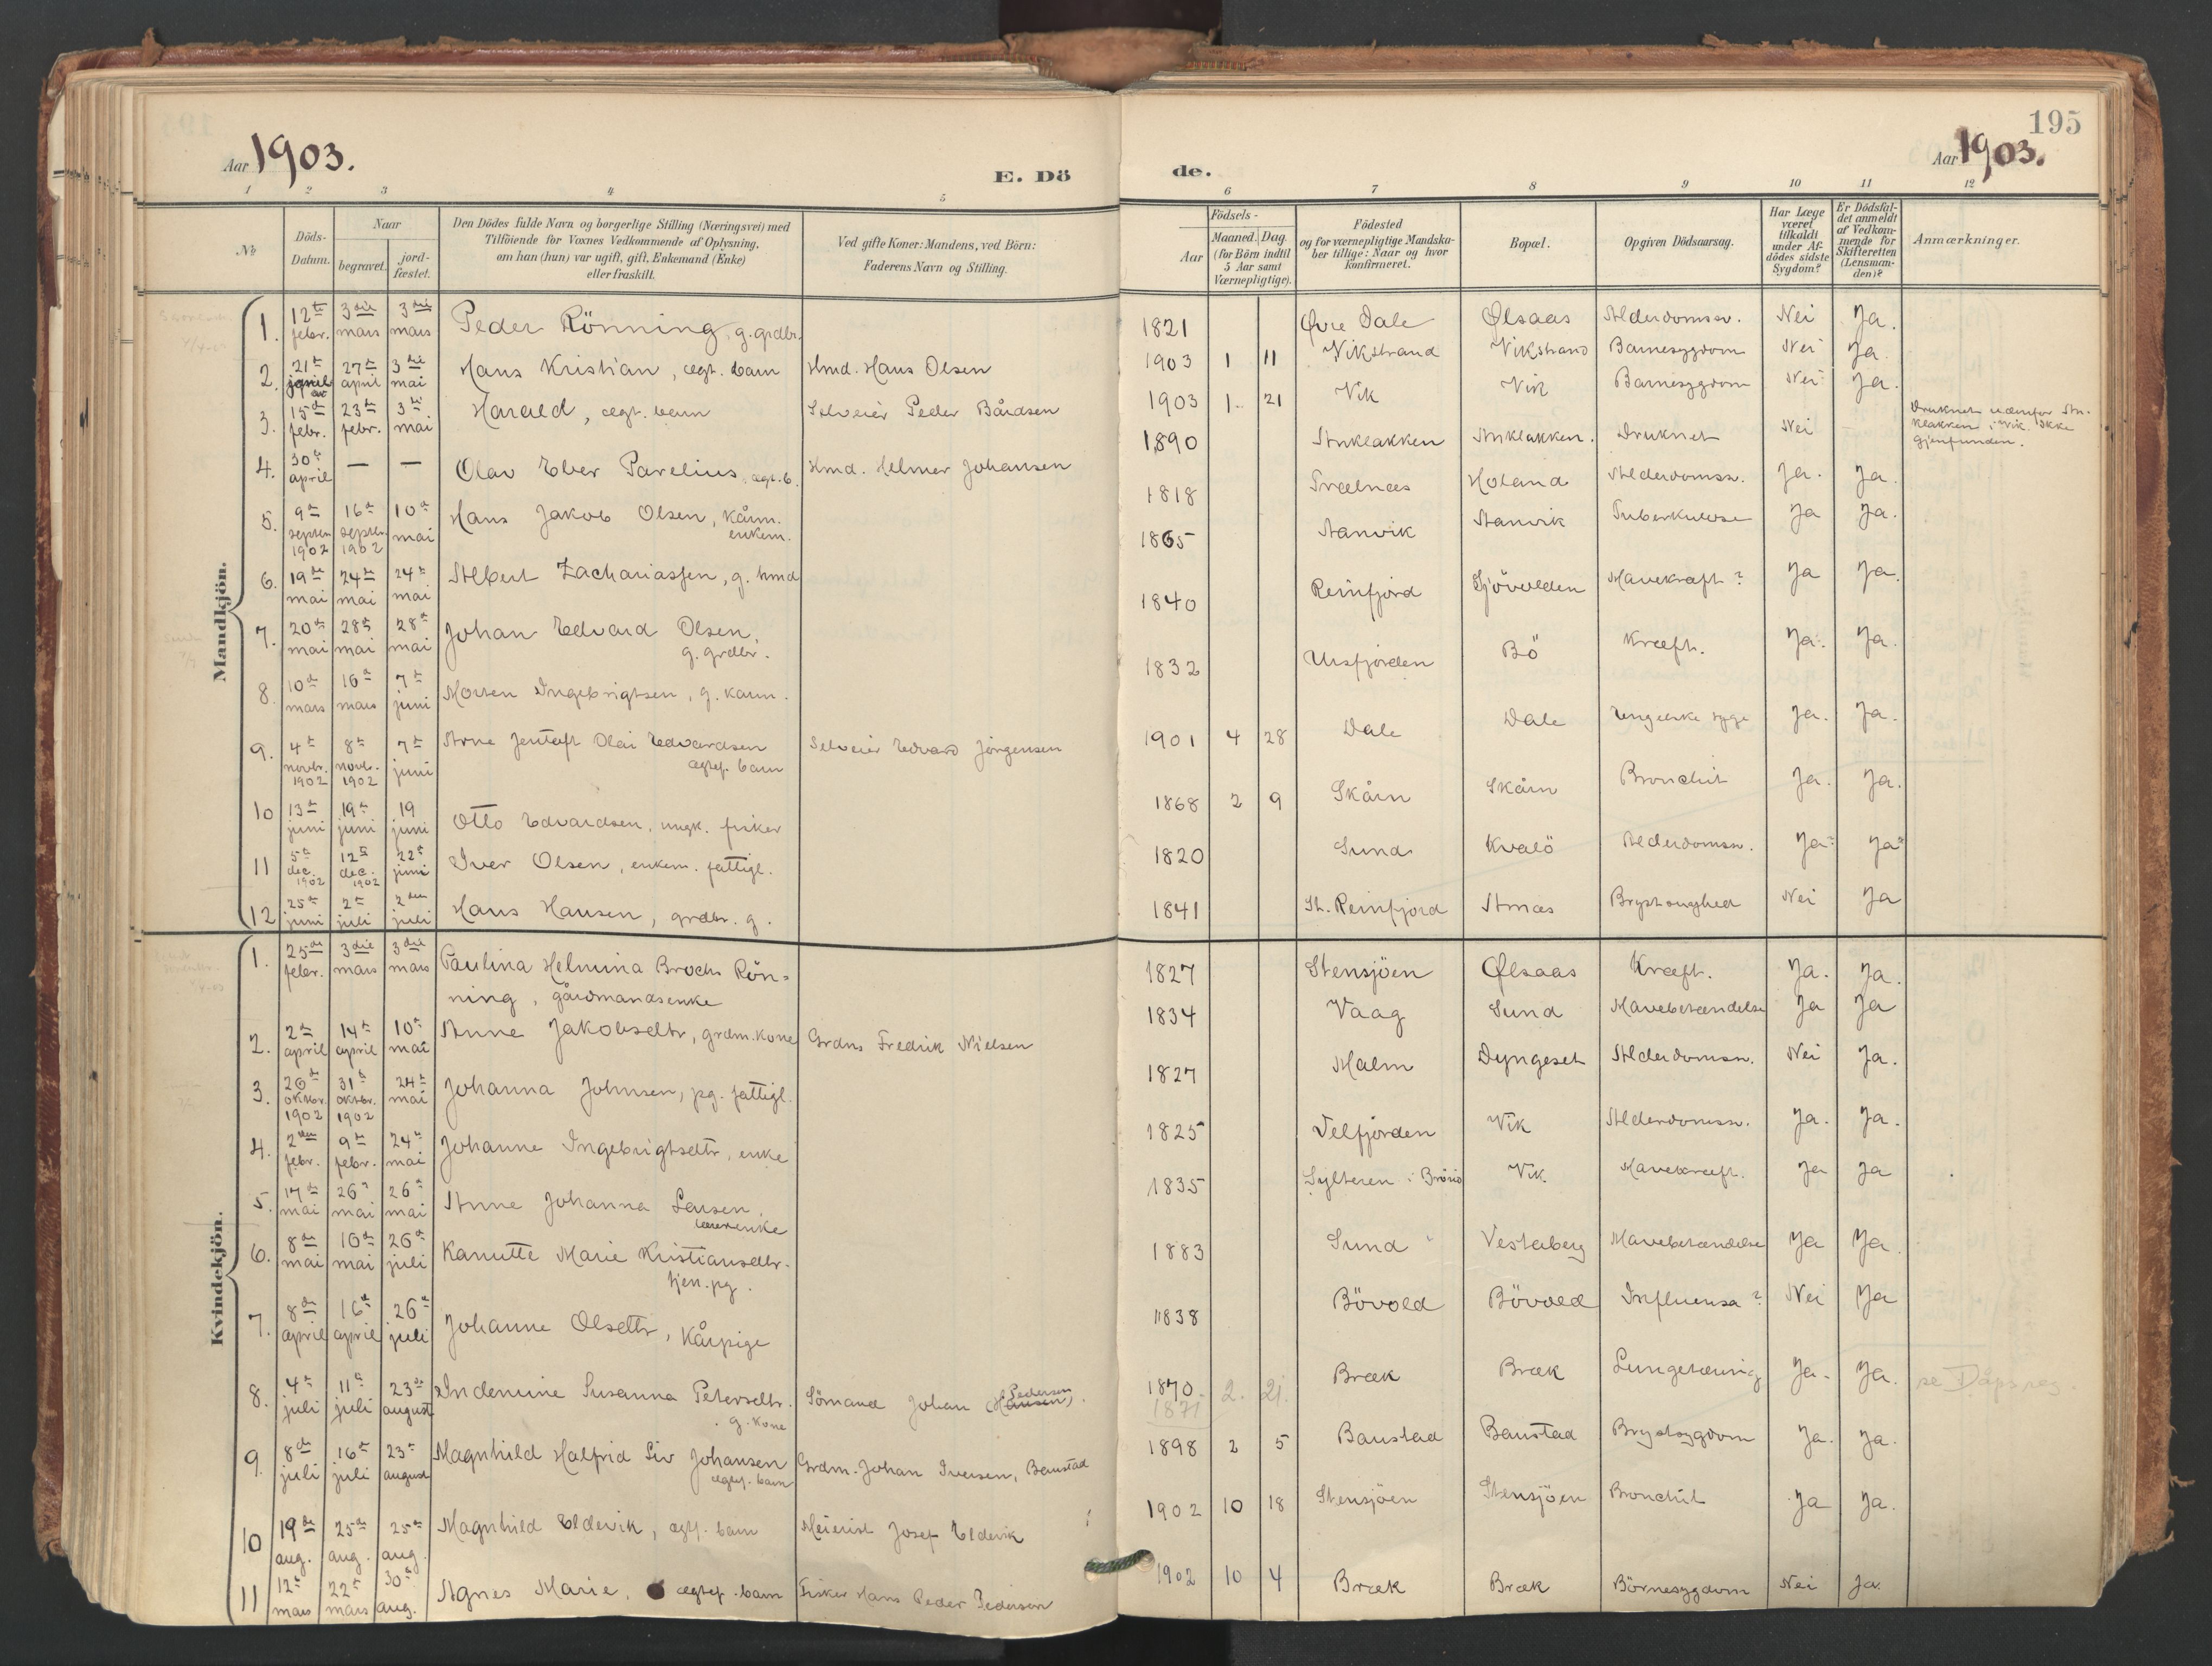 195
Aar 1903.
E. Dö
de.
Aar 1903.
1 2 3 4 5
6 7 8 9 10 11 12
№
Döds-Datum.
Naar
begravet.
jord-fæstet.
Den Dödes fulde Navn og borgerlige Stilling (Næringsvei) med
Tilföiende for Voxnes Vedkommende af Oplysning,
om han (hun) var ugift, gift, Enkemand (Enke)
eller fraskilt.
Ved gifte Koner: Mandens, ved Börn:
Faderens Navn og Stilling.
Födsels-
Aar
Maaned. Dag.
(for Börn indtil
5 Aar samt
Værnepligtige).
Födested
og for værnepligtige Mandska-
ber tillige: Naar og hvor
konfirmeret.
Bopæl.
Opgiven Dödsaarsag.
Har Læge
været
tilkaldt
under Af-
dödes sidste
Sygdom?
Er Dödsfal-
det anmeldt
af Vedkom-
mende for
Skifteretten
(Lensman-
den)?
Anmærkninger.
Mandkjön.
1. 12te febr. 3die mars 3die mars Peder Rönning, g. grdbr. 1821 Øvre Dale Ølsaas Alderdomssv. Nei Ja.
2. 21de 27de april 3die mai Hans Kristian, ægt. barn Hmd. Hans Olsen 1903 1 11 Vikstrand Vikstrand Barnesygdom Nei Ja.
3. 15de febr. 23de febr. 3die mai Harald, ægt. barn Selveier Peder Bårdsen 1903 1. 21 Vik Vik Barnesygdom Nei Ja.
4. 30te april — — Olav Eber Parelius, ægt. b. Hmd. Helmer Johansen 1890 Druknet Nei
Druknet udenfor
i Vik. Ikke
gjenfunden.
5. 9de septbr. 1902 16de septbr. 1902 10de mai Hans Jakob Olsen, Kårm. enkem. 1818 Trælnes Holand Alderdomssv. Ja. Ja.
6. 19de mai 24de mai 24de mai Albert Zachariassen, g. hmd 1865 Stanvik Stanvik Tuberkulose Ja Ja.
7. 20de mai 28de mai 28de mai Johan Edvard Olsen, g. grdbr. 1840 Reinfjord Sjövolden Mavekræft? Ja Ja.
8. 10de mars 16de mars 7de juni Morten Ingebrigtsen, g. kaarm. 1832 Ursfjorden Bö Kræft. Ja. Ja.
9. 4de novbr. 1902 8de novbr. 1902 7de juni Arne Jentoft Olai Edvardsen ægtef. barn Selveier Edvard Jörgensen 1901 4 28 Dale Dale Engelske syge Ja. Ja.
10 13de juni 19de juni 19 juni Otto Edvardsen, ungk. fisker 1868 2 9 Skårn Skårn Bronchit Ja. Ja.
11 5te dec. 1902 12te dec. 1902 22de juni Iver Olsen, enkem. fattigl. 1820 Sund Kvalö Alderdomssv. Ja. Ja
12 25de juni 2de juli 2den juli Hans Hansen, grdbr. g. 1841 St. Reinfjord Arnæs Brystonghed Nei Ja
Kvindekjön.
1. 25de febr. 3die mars 3die mars Paulina Helmina Brochs Rön-
ning, gårdmandsenke 1827 Stensjöen Ølsaas Kræft. Ja. Ja.
2. 2de april 14de april 10de mai Anne Jakobsdtr, grdm. kone Grdm. Fredrik Nielsen 1834 Vaag Sund Mavebetændelse Ja Ja
3. 26de oktbr. 1902 31te oktbr. 1902 24de mai Johanna Johnsen, pg. fattigl. 1827 Malm Dyngeset Alderdomssv. Nei Ja.
4. 2den febr. 9de febr. 24de mai Johanne Ingebrigtsdtr, enke 1825 Velfjorden Vik Alderdomssv. Ja. Ja.
5. 17de mai 26de mai 26de mai Anne Johanna Lensen, lærerenke 1835 Sylteren i Brönö Vik. Mavekræft. Ja Ja
6. 8de mai 16de mai 26de juli Kanutte Marie Kristiansdtr. tjen. pg. 1883 Sund Vestaberg Mavebetændelse Ja Ja.
7. 8de april 16de april 26de juli Johanne Olsdtr, Kårpige 1838 Bövold Bövold Influensa? Nei Ja
8. 4de juli 11te juli 23de august Indemine Susanna Petersdtr. g. kone Sömand Johan (Hansen) Pedersen. 1870. 1871 2. 21. Bræk Bræk Lungetæring Ja. Ja. se Dåpsreg.
9. 8de juli 16de juli 23de august Magnhild Halfrid Siv Johansen ægtef. barn Grdm. Johan Iversen, Baustad 1898 2 5 Baustad Baustad Brystsygdom Ja. Ja.
10 19de aug. 25de aug. 25de aug. Magnhild Eldevik, ægtf. barn Meierist Josef Eldevik 1902 10 18 Stensjöen Stensjöen Bronchit Ja Ja.
11 12te mars 22de mars 30te aug. Agnes Marie, ægtef. barn Fisker Hans Peder Pedersen 1902 10 4 Bræk Bræk Börnesygdom Nei Ja.